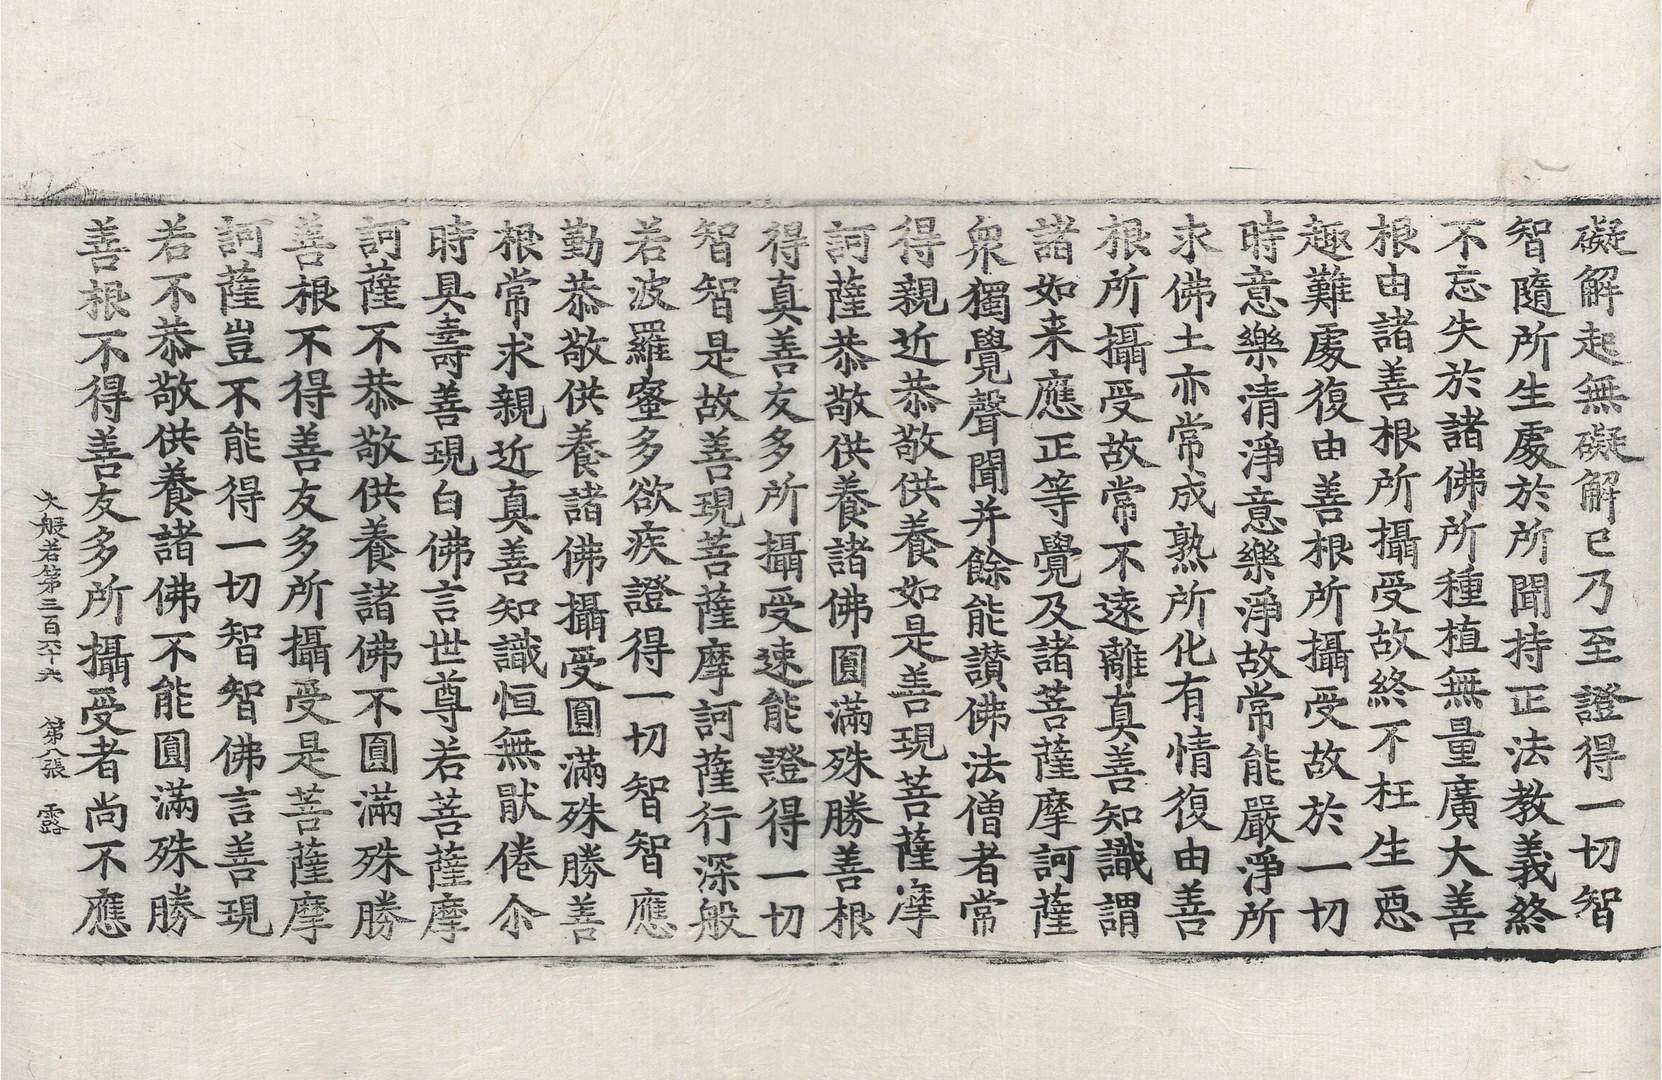 礙解起無礙解已乃至證得一切智
智隨所生處於所聞持正法教義終
不忘失於諸佛所種植無量廣大善
根由諸善根所攝受故終不枉生惡
趣難處復由善根所攝受故於一切
時意樂清淨意樂淨故常能嚴淨所
求佛土亦常成熟所化有情復由善
根所攝受故常不遠離真善知識謂
諸如来應正等覺及諸菩薩摩訶薩
衆獨覺聲聞并餘能讃佛法僧者常
得親近恭敬供養如是善現菩薩摩
訶薩恭敬供養諸佛圓滿殊勝善根
得真善友多所攝受速能證得一切
智智是故善現菩薩摩訶薩行深般
若波羅蜜多欲疾證得一切智智應
勤恭敬供養諸佛攝受圓滿殊勝善
根常求親近真善知識恒無猒倦尒
時具壽善現白佛言世尊若菩薩摩
訶薩不恭敬供養諸佛不圓滿殊勝
善根不得善友多所攝受是菩薩摩
訶薩豈不能得一切智智佛言善現
若不恭敬供養諸佛不能圓滿殊勝
善根不得善友多所攝受者尚不應
大般若第三百六十六 第八張 露